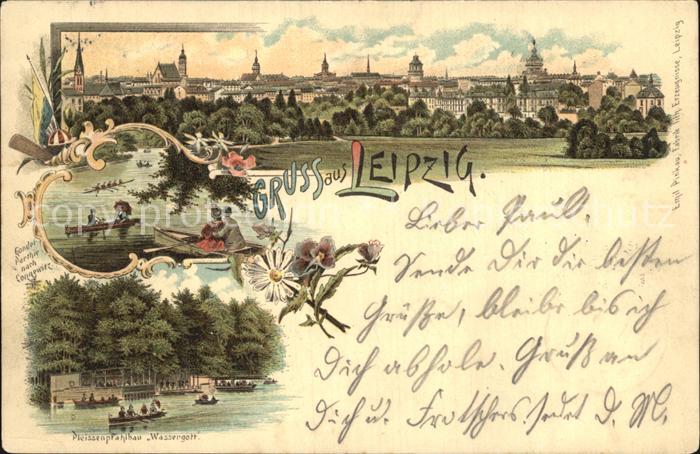 GRUSS aus LEIPZIG.
Emil Pinkau, Fabrik lith. Erzeugnisse, Leipzig
Gondel-
Parthie
nach
Connewitz
Pleissenpfahlbau „Wassergott".
Lieber Paul.
Sende Dir die besten
Grüße, bleibe bis ich
Dich abhole. Gruß an
Dich u. Frotschers. sedet D. M.